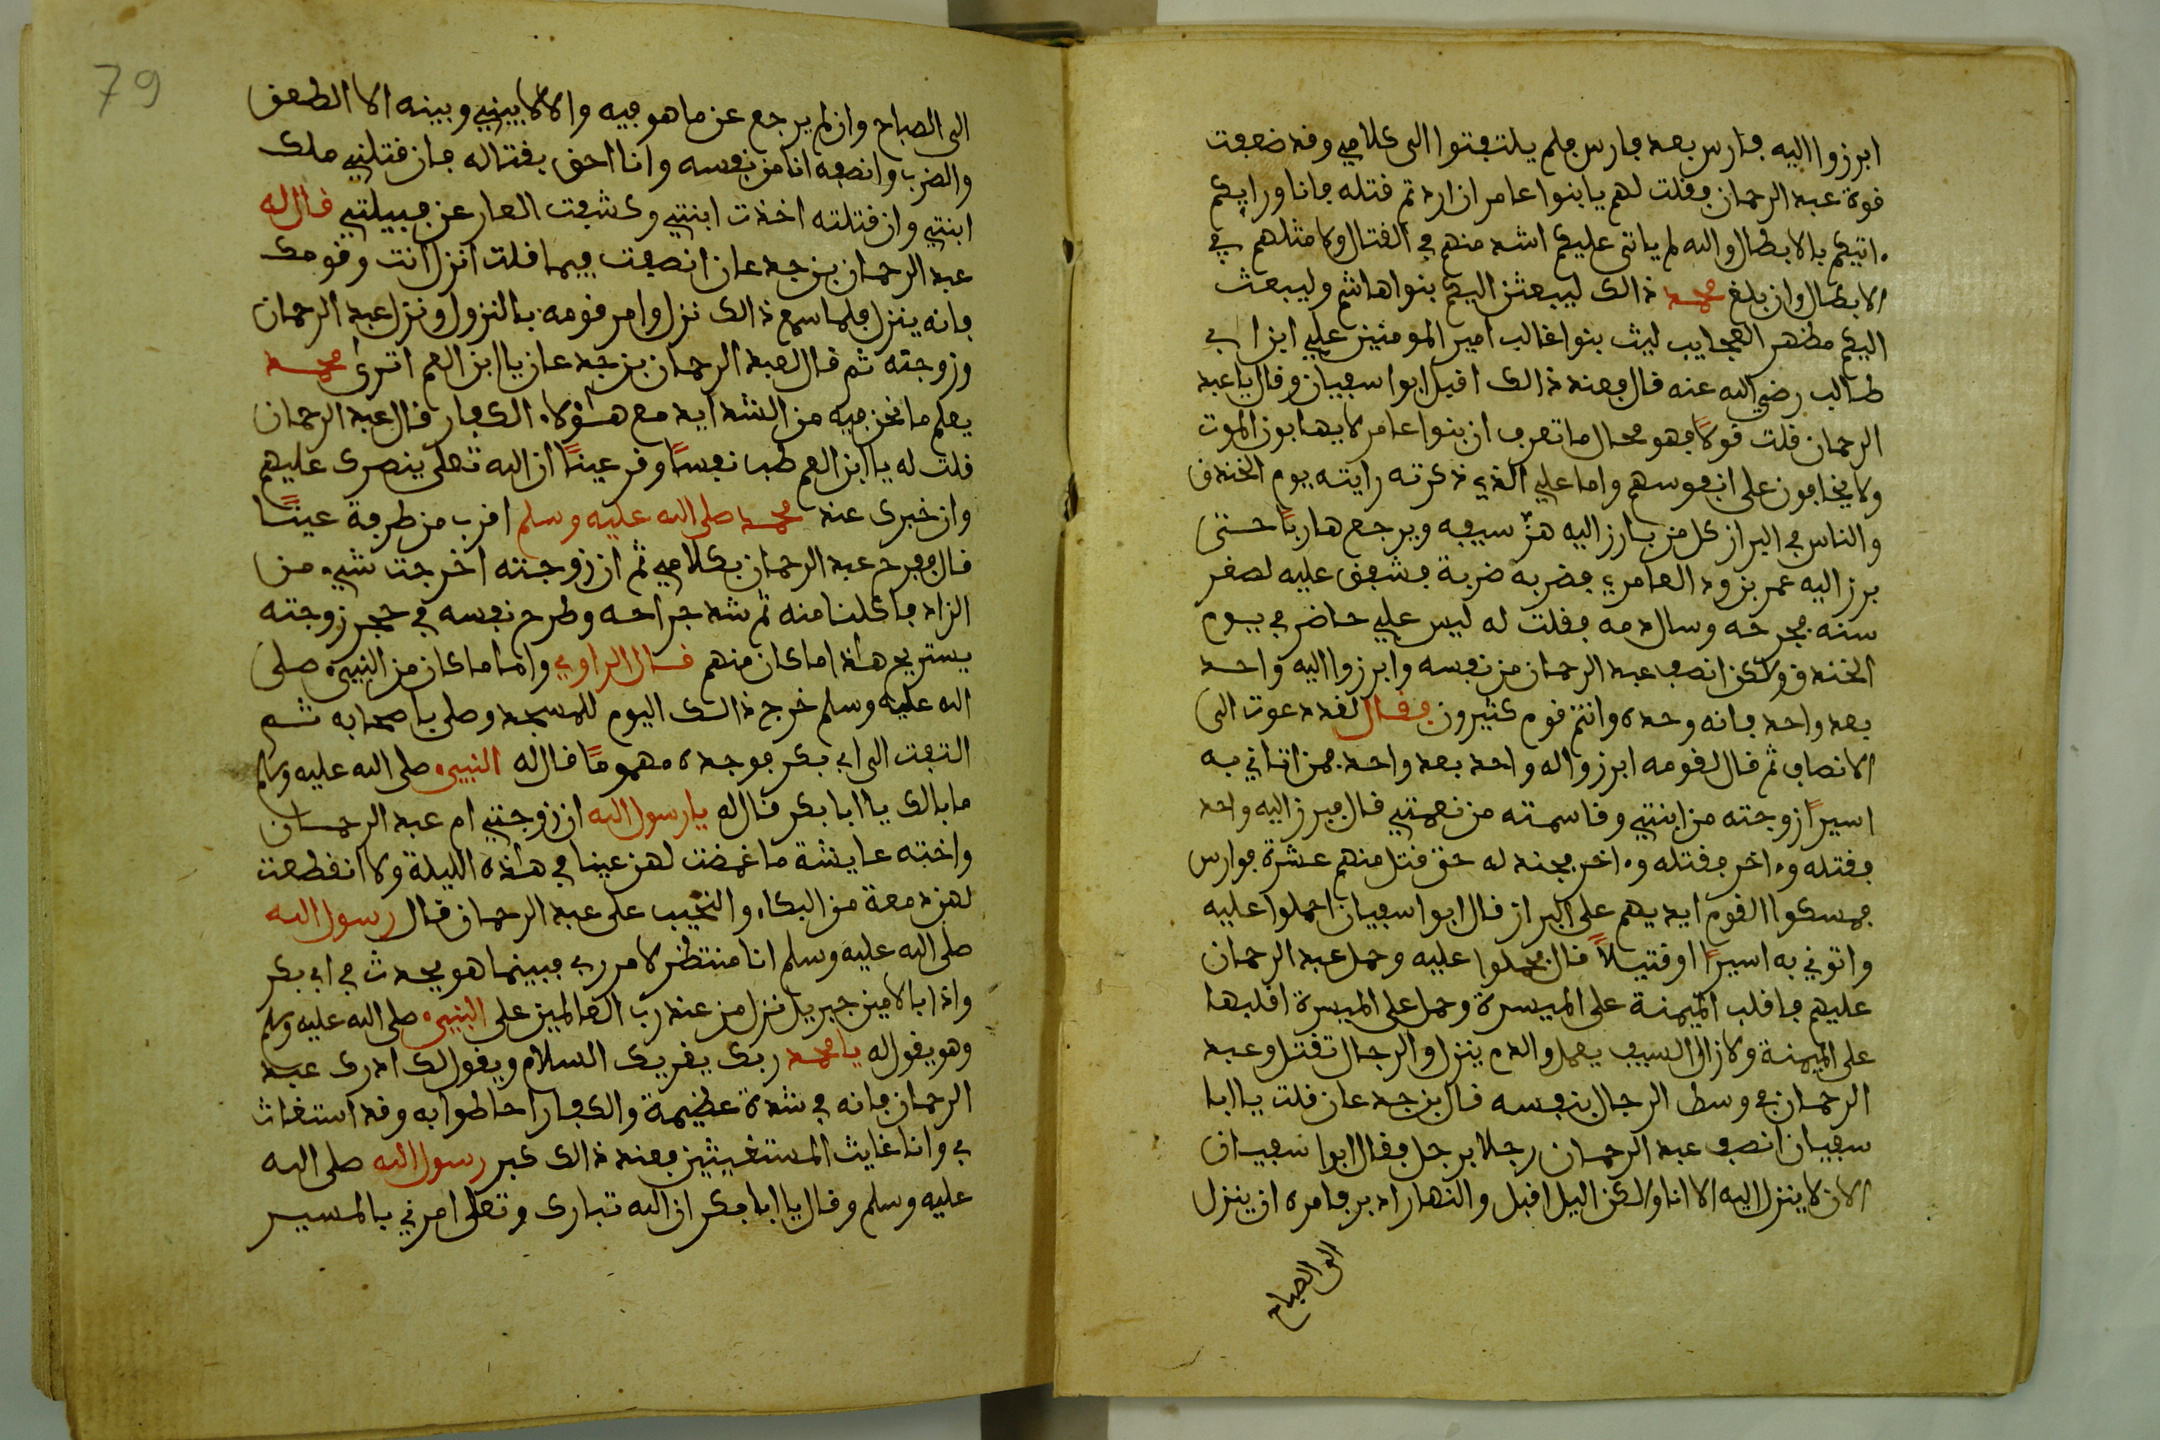 ابرزوا اليه فارس بعد فارس فلم يلتفتوا الى كلامي وقد ضعفت
قوة عبد الرحمان فقلت لهم يا بنوا عامر ان اردتم قتله فانا ورايكم
ءاتيكم بالابطال والله لم ياتى عليكم اشد منهم في القتال ولا مثلهم في
الابطال وان بلغ محمد ذالك ليبعثن اليكم بنوا هاشم وليبعث
اليكم مظهر العجايب ليث بنوا غالب امير المومنين علي ابن ابي
طالب رضي الله عنه قال فعند ذالك اقبل ابوا سفيان وقال يا عبد
الرحمان قلت قولاً فهو محال ما تعرف ان بنوا عامر لا يهابون الموت
ولا يخافون على انفوسهم واما علي الذي ذكرته رايته يوم الخندق
والناس في البراز كل من بارز اليه هزّ سيفه ويرجع هارباً حتى
برز اليه عمر بن ود العامري فضربه ضربة فشفق عليه لصغر
سنه فجرحه وسال دمه فقلت له ليس علي حاضر في يوم
الخندق ولاكن انصف عبد الرحمان من نفسه وابرزوا اليه واحد
بعد واحد فانه وحده وانتم قوم كثيرون فقال لقد دعوت الى
الانصاف ثم قال لقومه ابرزوا له واحد بعد واحد فمن اتاني به
اسيراً زوجته من ابنتي وقاسمته من نعمتي قال فبرز اليه واحد
فقتله وءاخر فقتله وءاخر فجندله حتى قتل منهم عشرة فوارس
فمسكوا القوم ايديهم على البراز قال ابوا سفيان احملوا عليه
واتوني به اسيراً او قتيلاً قال فحملوا عليه وحمل عبد الرحمان
عليهم فاقلب الميمنة على الميسرة وحمل على الميسرة اقلبها
على الميمنة ولا زال السيف يعمل والدم ينزل والرجال تقتل وعبد
الرحمان في وسط الرجال بنفسه قال بن جدعان قلت يا ابا
سفيان انصف عبد الرحمان رجلا برجل فقال ابوا سفيان
الان لا ينزل اليه الا انا ولاكن اليل اقبل والنهار ادبر فامره ان ينزل
الى الصباح
79
الى الصباح وان لم يرجع عن ما هو فيه والا لا بيني وبينه الا الطعن
والضرب وانصفه انا من نفسه وانا احق بقتاله فان قتلني ملك
ابنتي وان قتلته اخذت ابنتي وكشفت العار عن قبيلتي قال له
عبد الرحمان بن جدعان انصفت فيما قلت انزل انت وقومك
فانه ينزل فلما سمع ذالك نزل وامر قومه بالنزول ونزل عبد الرحمان
وزوجته ثم قال لعبد الرحمان بن جدعان يا ابن العم اترى محمد
يعلم ما نحن فيه من الشدايد مع هؤلاء الكفار قال عبد الرحمان
قلت له يا ابن العم طب نفساً وقر عيناً ان الله تعلى ينصرك عليهم
وان خبرك عند محمد صلى الله عليه وسلم اقرب من طرفة عيناً
قال ففرح عبد الرحمان بكلامي ثم ان زوجته اخرجت شيء من
الزاد فاكلنا منه ثم شد جراحه وطرح نفسه في حجر زوجته
يستريح هاذا ما كان منهم قال الراوي واما ما كان من النبيء صلى
الله عليه وسلم خرج ذالك اليوم للمسجد وصلى باصحابه ثم
التفت الى ابي بكر فوجده مهموماً قال له النبيء صلى الله عليه وسلم
ما بالك يا ابا بكر قال له يا رسول الله ان زوجتي ام عبد الرحمان
واخته عايشة ما غمضت لهن عينا في هاذه الليلة ولا انقطعت
لهن دمعة من البكاء والنحيب على عبد الرحمان قال رسول الله
صلى الله عليه وسلم انا منتظر لامر ربي فبينما هو يحدث في ابي بكر
واذا بالامين جبريل نزل من عند رب العالمين على النبيء صلى الله عليه وسلم
وهو يقول له يا محمد ربك يقريك السلام ويقول لك ادرك عبد
الرحمان فانه في شدة عظيمة والكفار احاطوا به وقد استغاث
بي وانا غايث المستغيثين فعند ذالك كبر رسول الله صلى الله
عليه وسلم وقال يا ابا بكر ان الله تبارك وتعلى امرني بالمسير